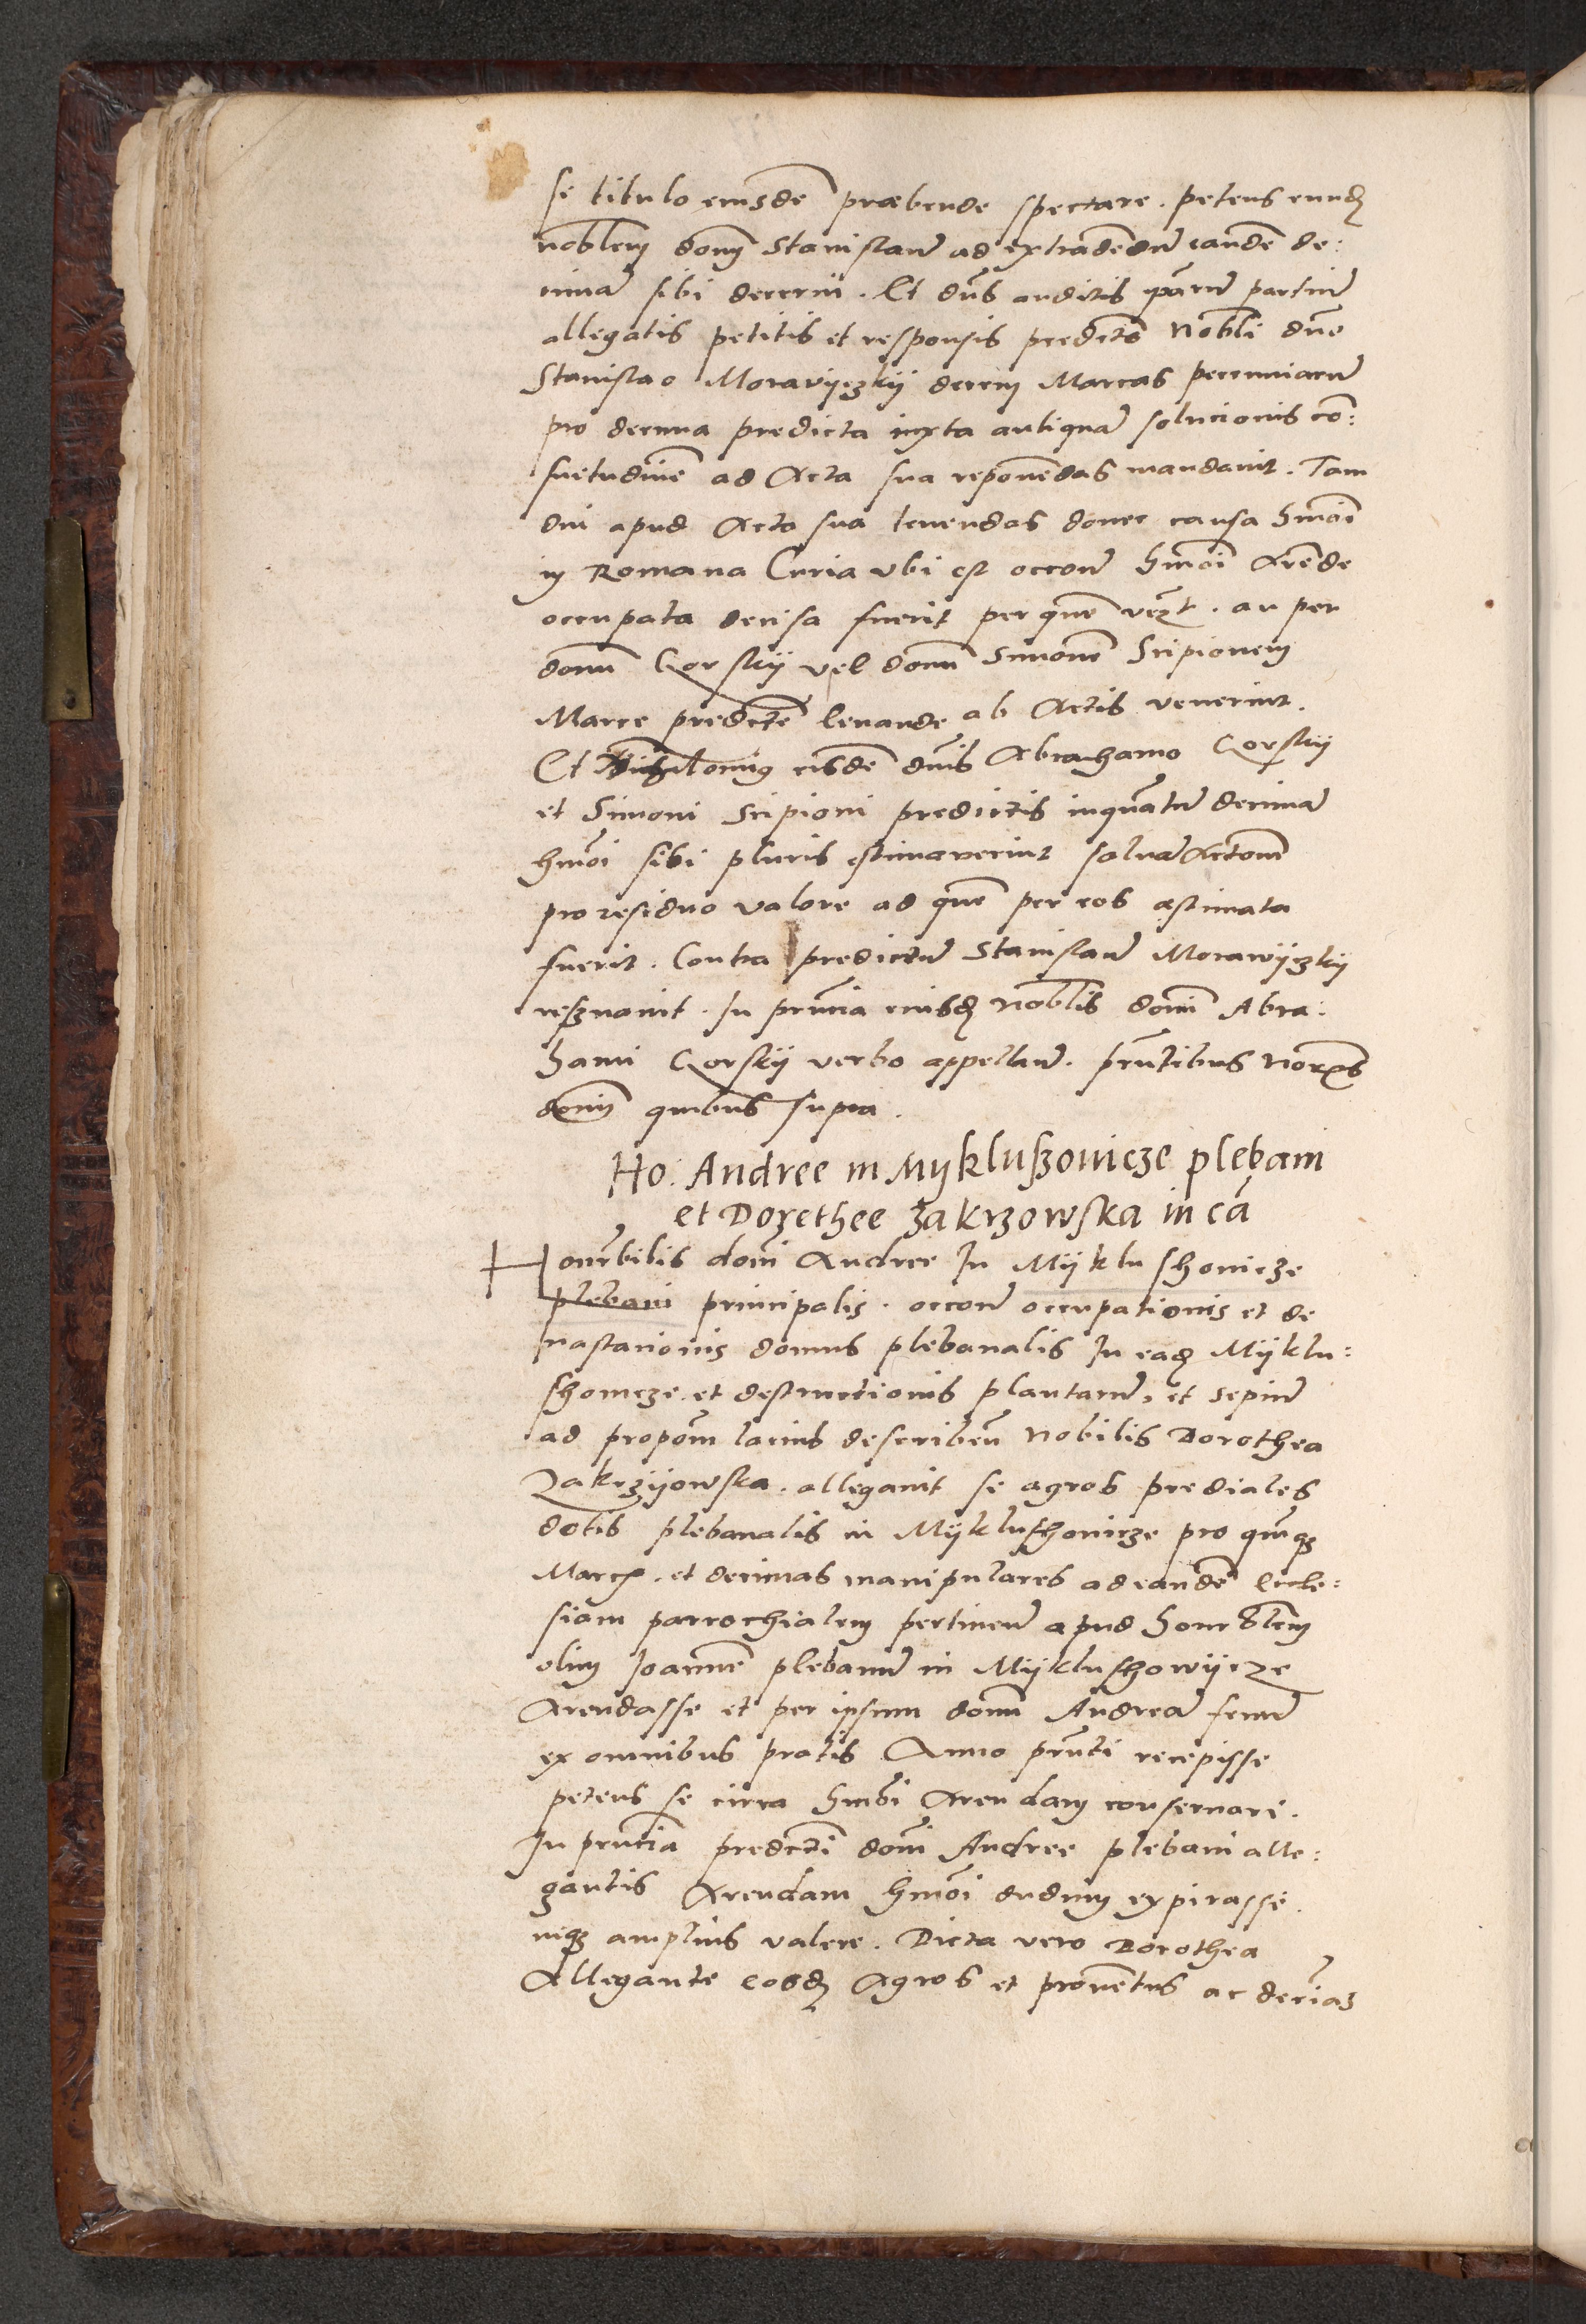 se titulo eiusdē præbende spectare. petens eundē
noblem donū Stanislaū ad extradēdū eandē de:
cimā sibi decerni. Et dn̄s auditis partiū
allegatis petitis et responsis predicto nobli dn̄o
Stanislao Moraviyczkij decem Marcas pecuniarū
pro decima predicta iuxta antiquā solucionis con̄:
suetudinē ad Acta sua reponēdas mandavit. Tam
diu apud Acta sua tenendas donec causa hmōi
in Romana Curia ubi est occōne hmōi Arēde
occupata decisa fuerit per quē . an per
donū Gorskij vel donū Simonē Scipionem
Marce predicte levande ab Actis venerint.
Et eisdē dnīs Abrahamo Gorskij
et Simoni Scipioni predictis inquātū decimā
hmōi sibi pluris estimaverint salvā Actōnē
pro residuo valore ad quē per eos æstimata
fuerit. Contra predictū Stanislaū Morawijczkij
reservavit. In prn̄cia eiusdē noblis donī Abra:
hami Gorskij verbo appellan̄. prn̄tibus
quibus supra.
Ho. Andree in Myklußovicze plebani
et Dorethee Zakrzowska in cā
Honorabilis donī Andree In Mijklu shovicze
plebani principalis. occōne occupationis et de
vastacionis domus plebanalis In eadē Mijklu:
shovicze. et destructionis plantarū, et sepiū
ad propōm lacius describen̄ Nobilis Dorothea
Zakrzijowska. allegavit se agros prediales
dotis plebanalis in Mijklushovicze pro quīqz
Marcis. et decimas manipulares ad eandē Eccle:
siam parrochialem pertinen̄ apud honorablem
olim Joannē plebanū in Mijklushowijcze
Arendasse et per ipsum donū Andreā fenū
ex omnibus pratis Anno prn̄ti recepisse
petens se circa hmōi Arendam conservari.
In prn̄cia predicti donī Andree plebani alle:
gantis Arendam hmōi dudum expirasse.
neqz amplius valere. Dicta vero Dorothea
Allegante eosdē Agros et provētus ac decīas